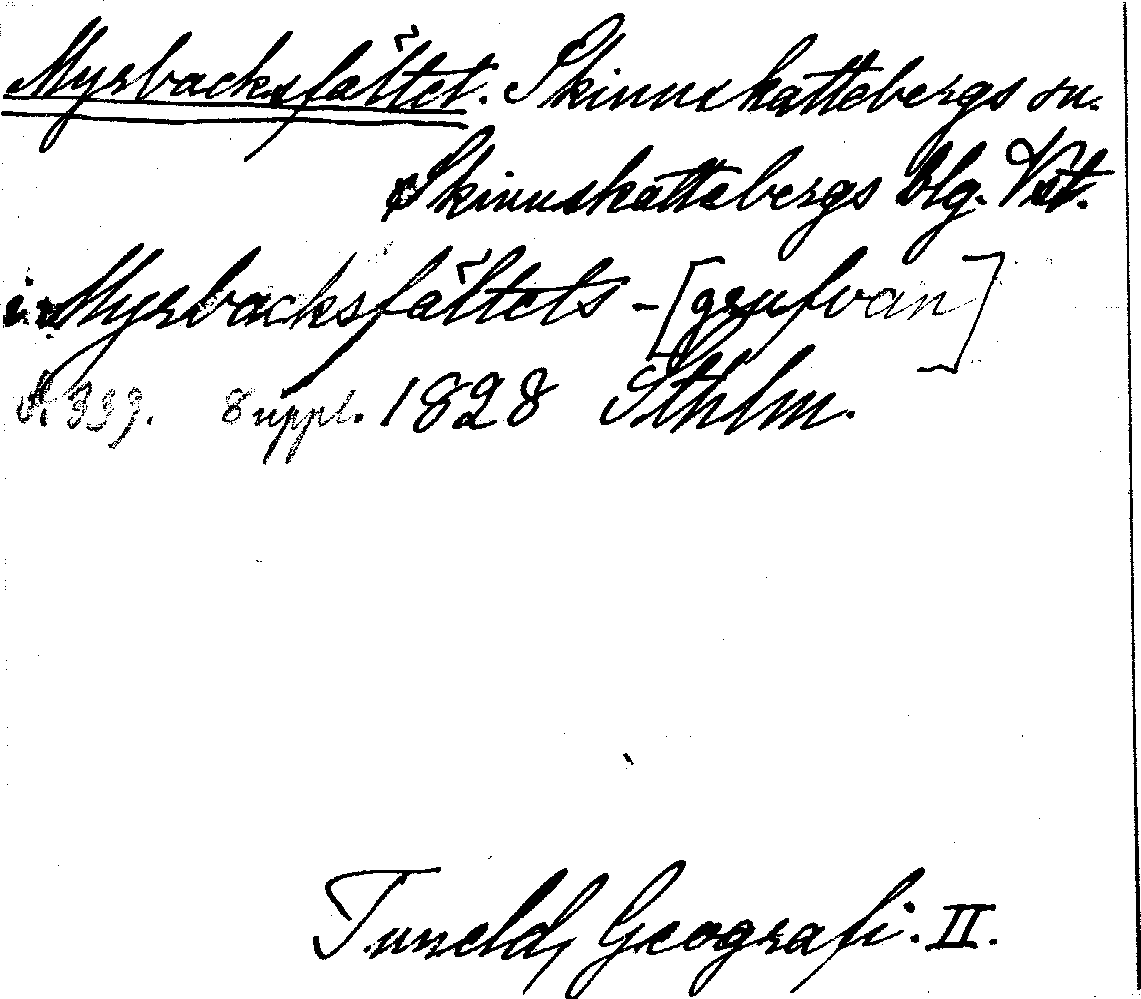 Myrbacksfältet. Skinnskattebergs sn.
Skinnskattebergs blg. Vstm.
Myrbacksfältets - [grufvan]
S. 339. 8 uppl. 1828 Sthlm.
Tuneld, Geografi. II.